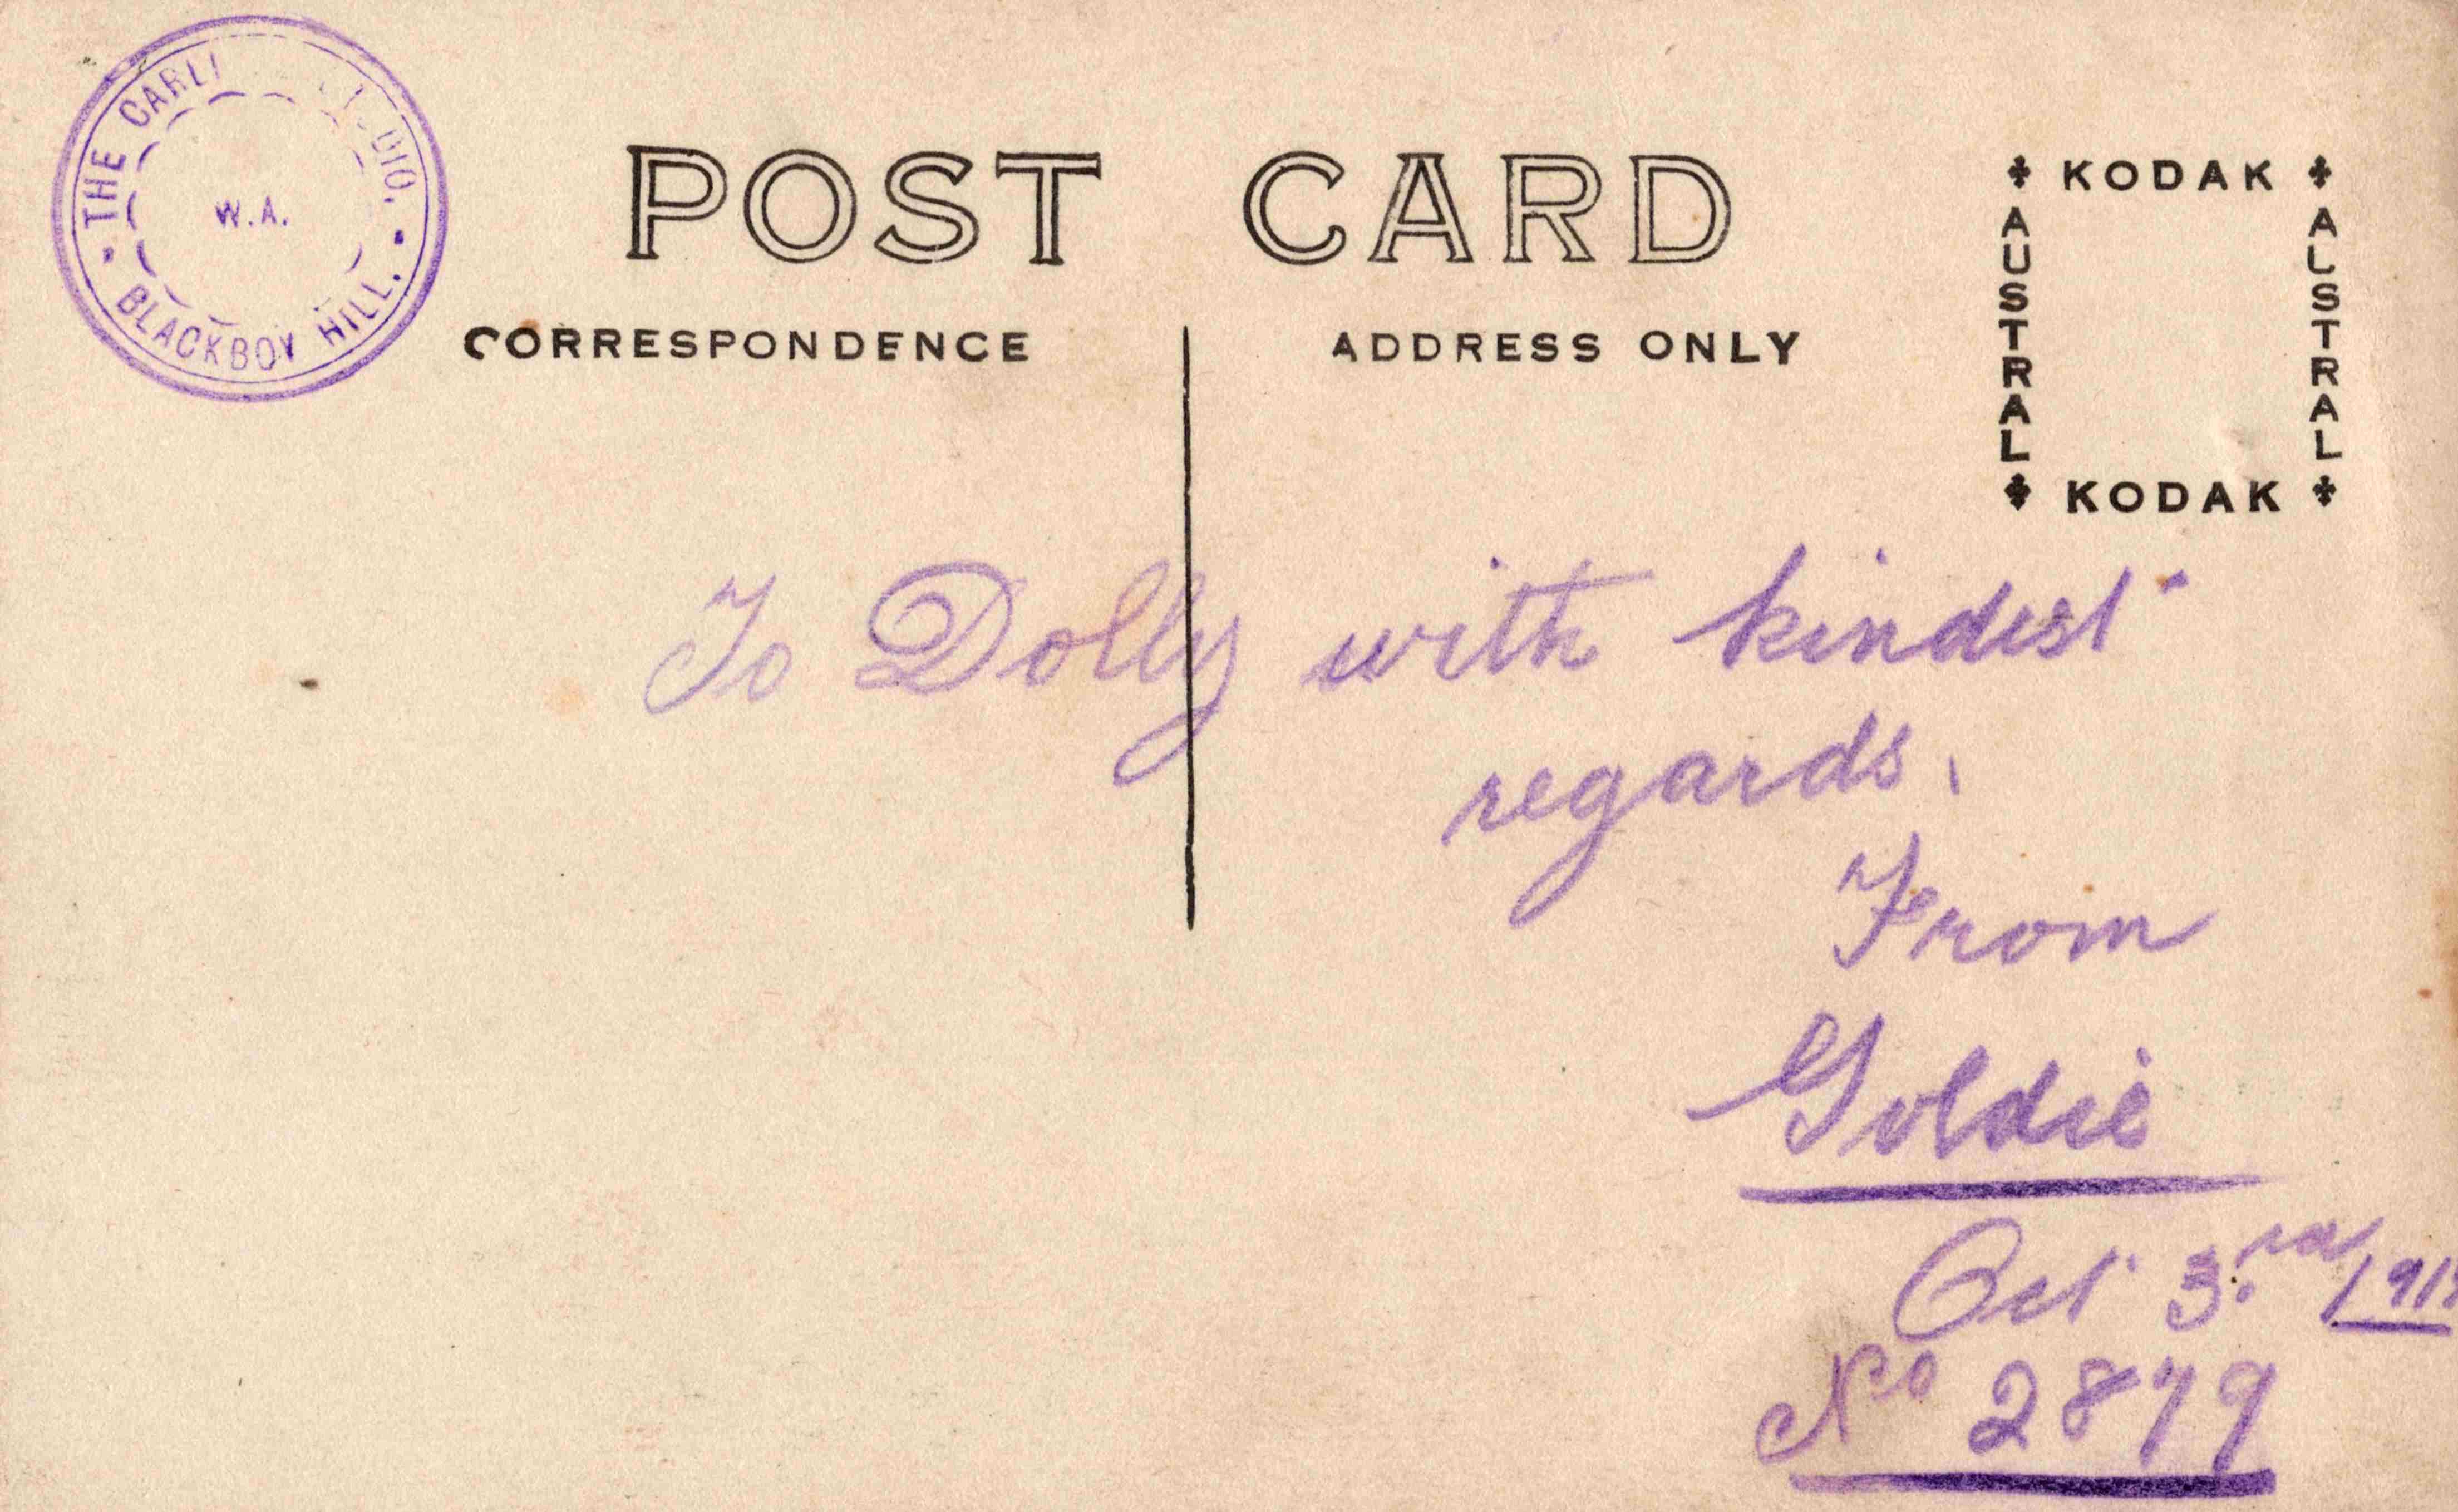 THE CARLI
DIO.
W.A.
BLACKBOY HILL.
POST CARD
CORRESPONDENCE
ADDRESS ONLY
KODAK
AUSTRAL
AUSTRAL
KODAK
To Dolly with kindest
regards.
From
Goldie
Oct 3rd
No 2879